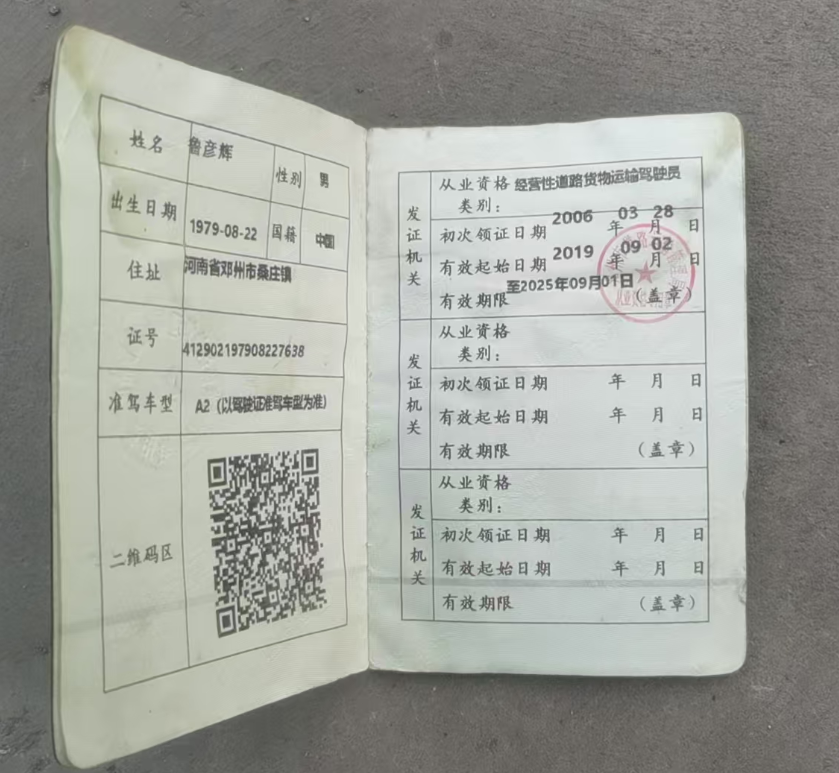 姓名 鲁彦辉 性别 男
出生日期 1979-08-22 国籍 中国
住址 河南省邓州市桑庄镇
证号 412902197908227638
准驾车型 A2（以驾驶证准驾车型为准）
二维码区
发证机关
从业资格类别： 经营性道路货物运输驾驶员
初次领证日期 2006 年 03 月 28 日
有效起始日期 2019 年 09 月 02 日
有效期限 至2025年09月01日 （盖章）
发证机关
从业资格
类别：
初次领证日期 年 月 日
有效起始日期 年 月 日
有效期限 （盖章）
发证机关
从业资格
类别：
初次领证日期 年 月 日
有效起始日期 年 月 日
有效期限 （盖章）